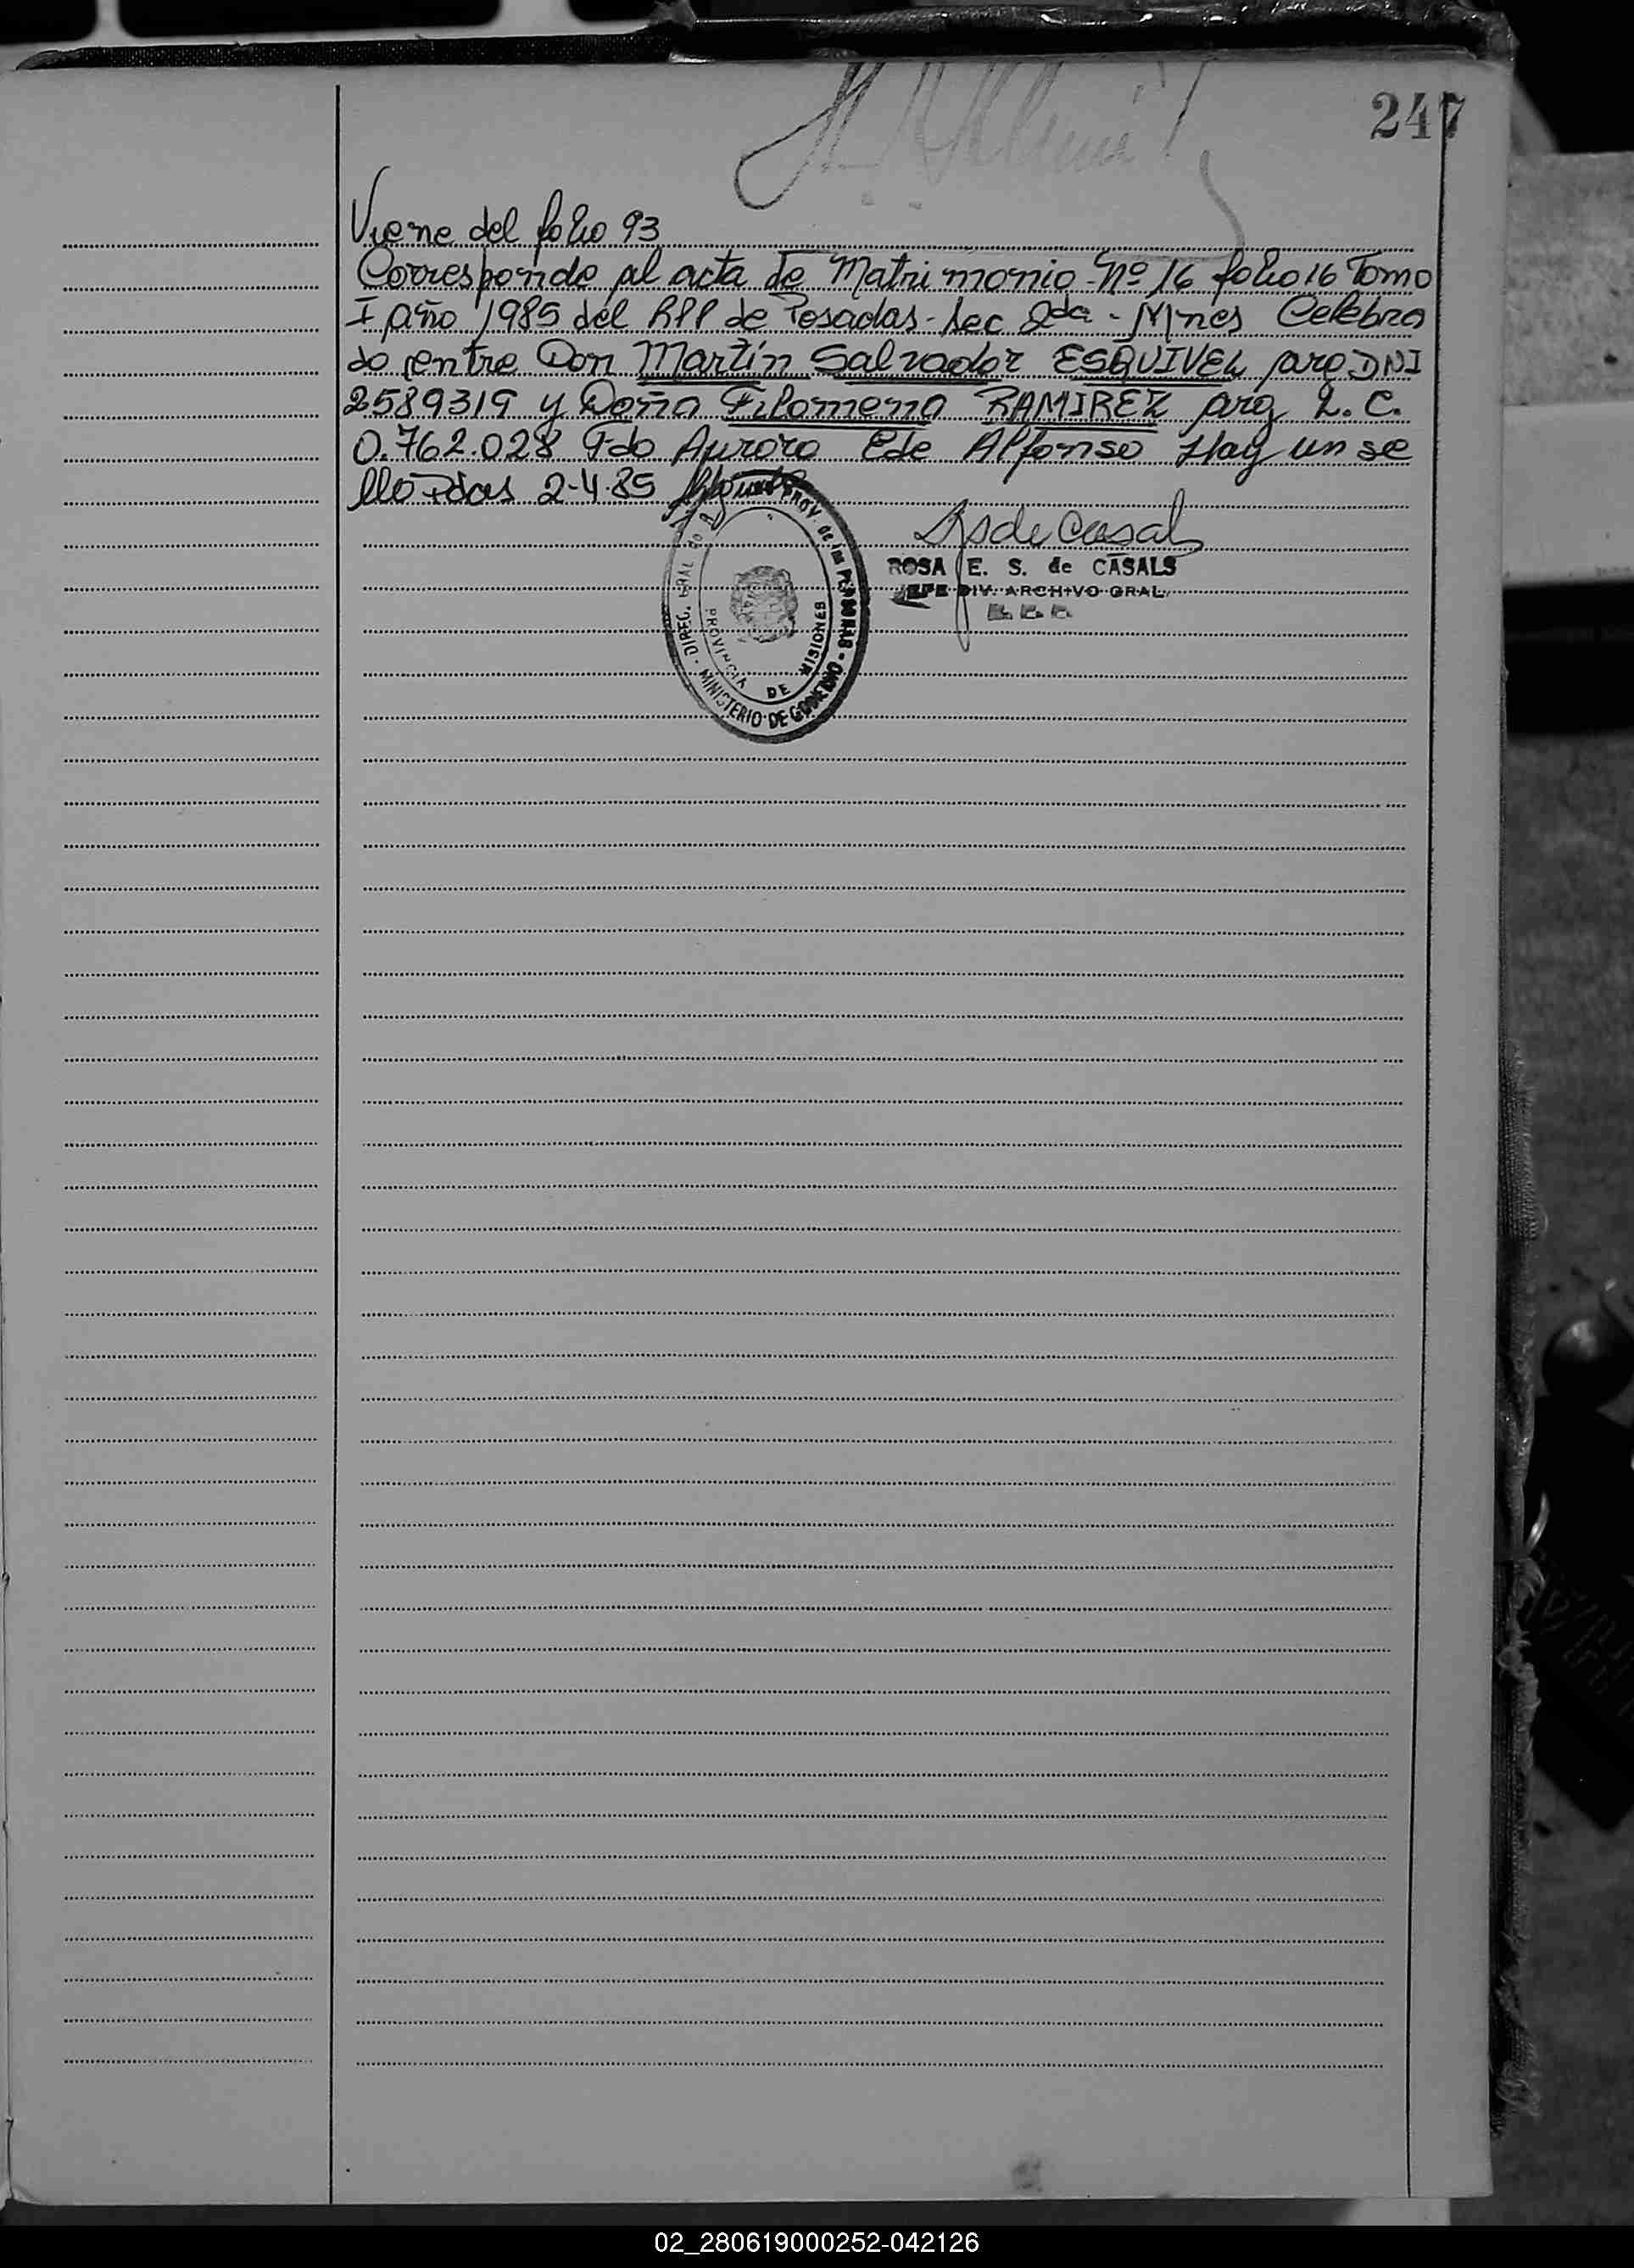 247
Viene del folio 93
Corresponde al acta de Matrimonio Nº 16 folio 16 Tomo
I año 1985 del RPP de Posadas - Sec 2da - Mnes Celebra
do entre Don Martín Salvador ESQUIVEL arg DNI
2589319 y Doña Filomena RAMIREZ arg L.C.
0.762.028 Fdo Aurora E de Alfonso Hay un se
llo Pdas 2-4-85
R S de Casals
ROSA E. S. de CASALS
JEFE DIV. ARCHIVO GRAL.
DIREC. GRAL PROV. de las PERSONAS - MINISTERIO DE GOBIERNO
PROVINCIA DE MISIONES
02_280619000252-042126